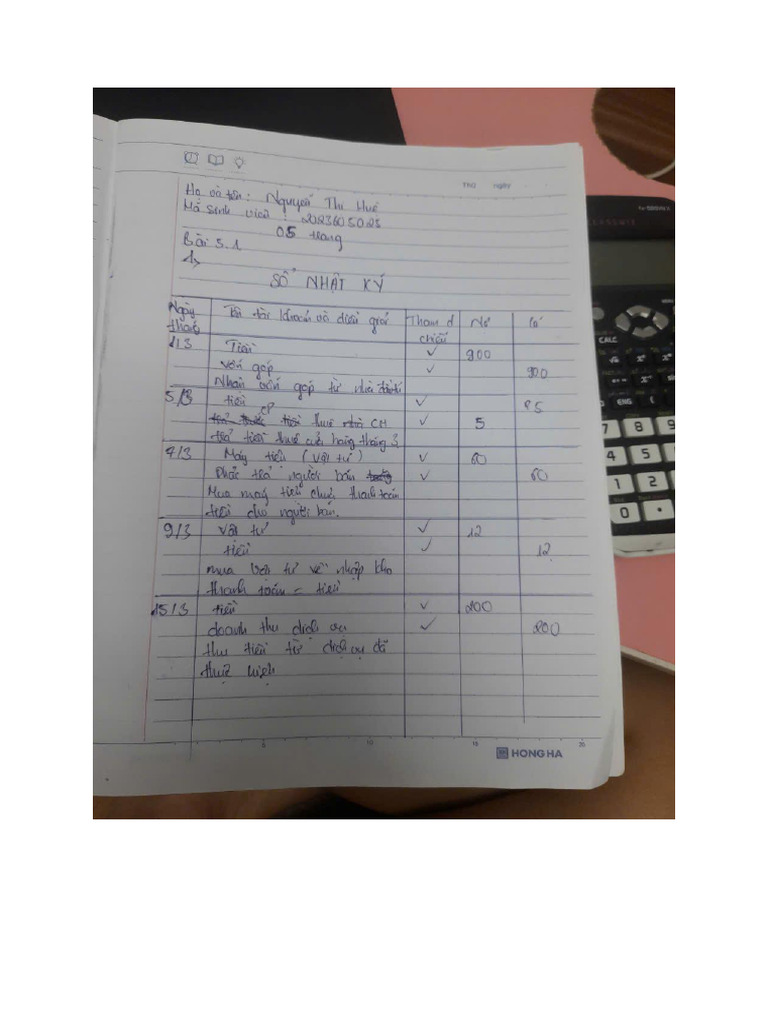 THỨ ngày
Họ và tên: Nguyễn Thị Huê
Mã sinh viên: 2023605025
05 trang
Bài 5.1
1>
SỔ NHẬT KÝ
Ngày tháng Tên tài khoản và diễn giải Tham đ chiếu Nợ Có
1/3 Tiền ✓ 900
Vốn góp ✓ 900
Nhận vốn góp từ nhà đầu tư
5/3 tiền ✓ 5
CP thuê nhà CH ✓ 5
trả tiền thuê cửa hàng tháng 3
7/3 Máy tiện (vật tư) ✓ 60
Phải trả người bán ✓ 60
Mua máy tiện chưa thanh toán
tiền cho người bán.
9/3 Vật tư ✓ 12
tiền ✓ 12
mua vật tư về nhập kho
thanh toán = tiền
15/3 tiền ✓ 200
doanh thu dịch vụ ✓ 200
thu tiền từ dịch vụ đã
thực hiện
5 10 15 20
HONG HA
CALC
7 8 9
4 5 6
1 2 3
0